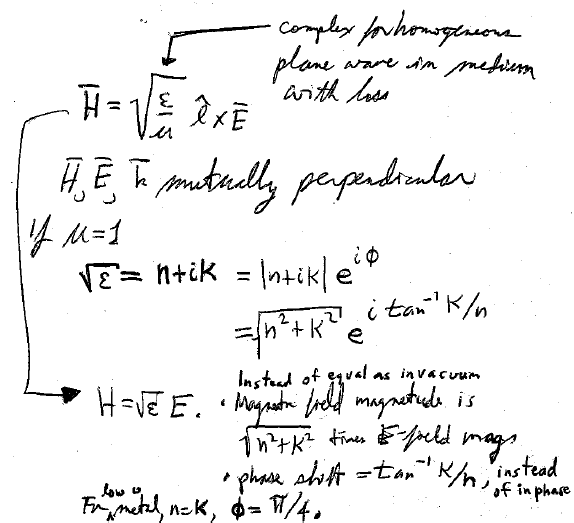 complex for homogeneous
plane wave in medium
with loss
H̅ = √(ε/μ) l̂ × E̅
H̅, E̅, k̅ mutually perpendicular
if μ=1
√ε = n+iK = |n+iK| e^{iφ}
= √(n²+K²) e^{i tan⁻¹ K/n}
Instead of equal as in vacuum
H=√ε E. • Magnetic field magnitude is
√(n²+K²) times E-field mag
• phase shift = tan⁻¹ K/n, instead
of in phase
For low ω metal, n=K, φ= π/4.